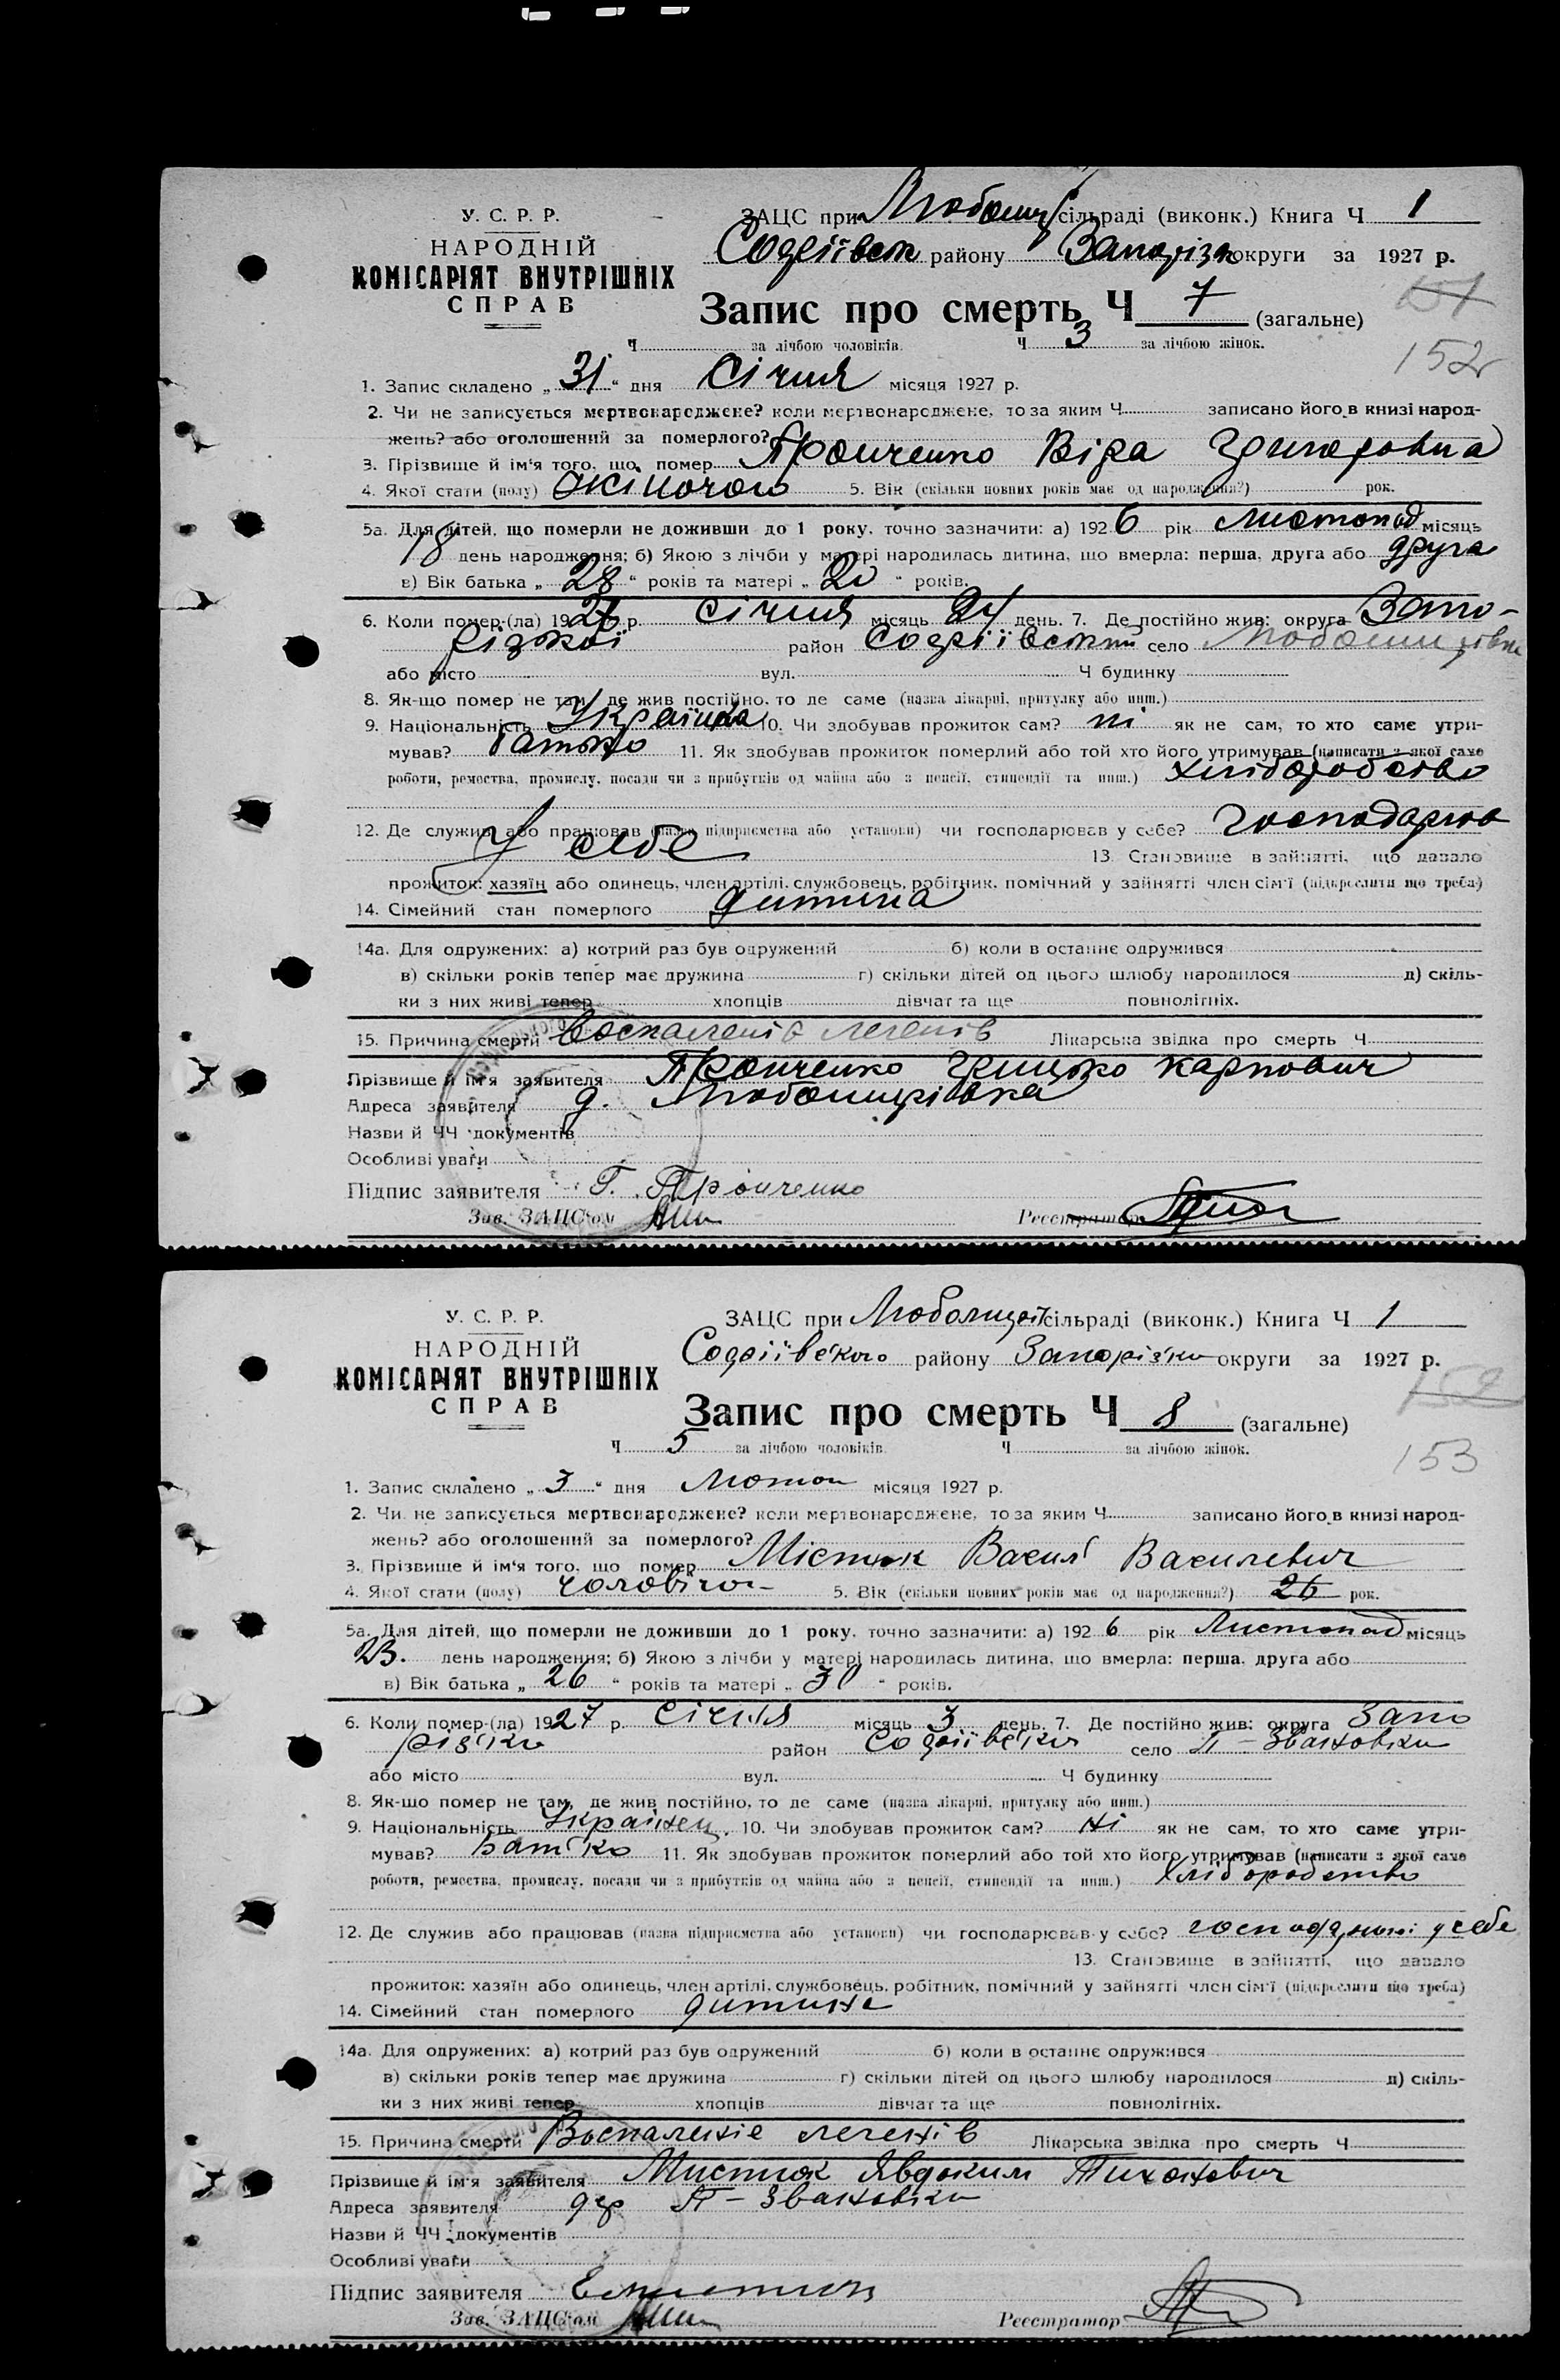 У. С. Р. Р.
НАРОДНІЙ
КОМІСАРІЯТ ВНУТРІШНІХ
СПРАВ
ЗАЦС при сільраді (виконк.) Книга Ч 1
Софіївськ району Запорізьк округи за 1927 р.
151
Запис про смерть Ч 7 (загальне)
Ч за лічбою чоловіків. Ч 3 за лічбою жінок.
152
1. Запис складено „ 31 “ дня Січня місяця 1927 р.
2. Чи не записується мертвонароджене? коли мертвонароджене, то за яким Ч записано його в книзі народ-
жень? або оголошений за померлого?
3. Прізвище й ім'я того, що помер Пронченко Віра Григоровна
4. Якої стати (полу) Жіночою 5. Вік (скільки повних років має од народження?) рок.
5а. Для дітей, що померли не доживши до 1 року, точно зазначити: а) 192 6 рік Листопад місяць
18 день народження; б) Якою з лічби у матері народилась дитина, що вмерла: перша, друга або друга
в) Вік батька „ 28 “ років та матері „ 20 “ років.
6. Коли помер-(ла) 19 27 р. січня місяць 24 день. 7. Де постійно жив: округа Запо-
різької район Софіївський село Любомирівка
або місто вул. Ч будинку
8. Як-що помер не там, де жив постійно, то де саме (назва лікарні, притулку або инш.)
9. Національність Українка 10. Чи здобував прожиток сам? ні як не сам, то хто саме утри-
мував? Батько 11. Як здобував прожиток померлий або той хто його утримував (написати з якої саме
роботи, ремества, промислу, посади чи з прибутків од майна або з пенсії, стипендії та инш.) хліборобство
12. Де служив або працював (назва підприємства або установи) чи господарював у себе? Господарюв
У себе 13. Становище в зайнятті, що давало
прожиток: хазяїн або одинець, член артілі, службовець, робітник, помічний у зайнятті член сім'ї (підкреслити що треба)
14. Сімейний стан померлого дитина
14а. Для одружених: а) котрий раз був одружений б) коли в останнє одружився
в) скільки років тепер має дружина г) скільки дітей од цього шлюбу народилося д) скіль-
ки з них живі тепер хлопців дівчат та ще повнолітніх.
15. Причина смерти Воспаленіє легенів Лікарська звідка про смерть Ч
Прізвище й ім'я заявителя Пронченко Грицько Карпович
Адреса заявителя д. Любомирівка
Назви й ЧЧ документів
Особливі уваги
Підпис заявителя Г. Пронченко
Зав. ЗАЦС'ом Реєстратор
У. С. Р. Р.
НАРОДНІЙ
КОМІСАРІЯТ ВНУТРІШНІХ
СПРАВ
ЗАЦС при сільраді (виконк.) Книга Ч 1
Софіївського району Запорізько округи за 1927 р.
152
Запис про смерть Ч 8 (загальне)
Ч 5 за лічбою чоловіків. Ч за лічбою жінок.
153
1. Запис складено „ 3 “ дня Лютого місяця 1927 р.
2. Чи не записується мертвонароджене? коли мертвонароджене, то за яким Ч записано його в книзі народ-
жень? або оголошений за померлого?
3. Прізвище й ім'я того, що помер Містюк Василь Василевич
4. Якої стати (полу) чоловічої 5. Вік (скільки повних років має од народження?) 26 рок.
5а. Для дітей, що померли не доживши до 1 року, точно зазначити: а) 192 6 рік Листопад місяць
23. день народження; б) Якою з лічби у матері народилась дитина, що вмерла: перша, друга або
в) Вік батька „ 26 “ років та матері „ 30 “ років.
6. Коли помер-(ла) 19 27 р. Січня місяць 3 день. 7. Де постійно жив: округа Запо
різько район Софіївсько село П-Звановки
або місто вул. Ч будинку
8. Як-що помер не там, де жив постійно, то де саме (назва лікарні, притулку або инш.)
9. Національність Українец. 10. Чи здобував прожиток сам? ні як не сам, то хто саме утри-
мував? Батько 11. Як здобував прожиток померлий або той хто його утримував (написати з якої саме
роботи, ремества, промислу, посади чи з прибутків од майна або з пенсії, стипендії та инш.) Хліборобство
12. Де служив або працював (назва підприємства або установи) чи господарював у себе? у себе
13. Становище в зайнятті, що давало
прожиток: хазяїн або одинець, член артілі, службовець, робітник, помічний у зайнятті член сім'ї (підкреслити що треба)
14. Сімейний стан померлого дитина
14а. Для одружених: а) котрий раз був одружений б) коли в останнє одружився
в) скільки років тепер має дружина г) скільки дітей од цього шлюбу народилося д) скіль-
ки з них живі тепер хлопців дівчат та ще повнолітніх.
15. Причина смерти Воспаленіє легенів Лікарська звідка про смерть Ч
Прізвище й ім'я заявителя Мистюк Явдоким Тихонович
Адреса заявителя дер П-Звановки
Назви й ЧЧ документів
Особливі уваги
Підпис заявителя
Зав. ЗАЦС'ом Реєстратор